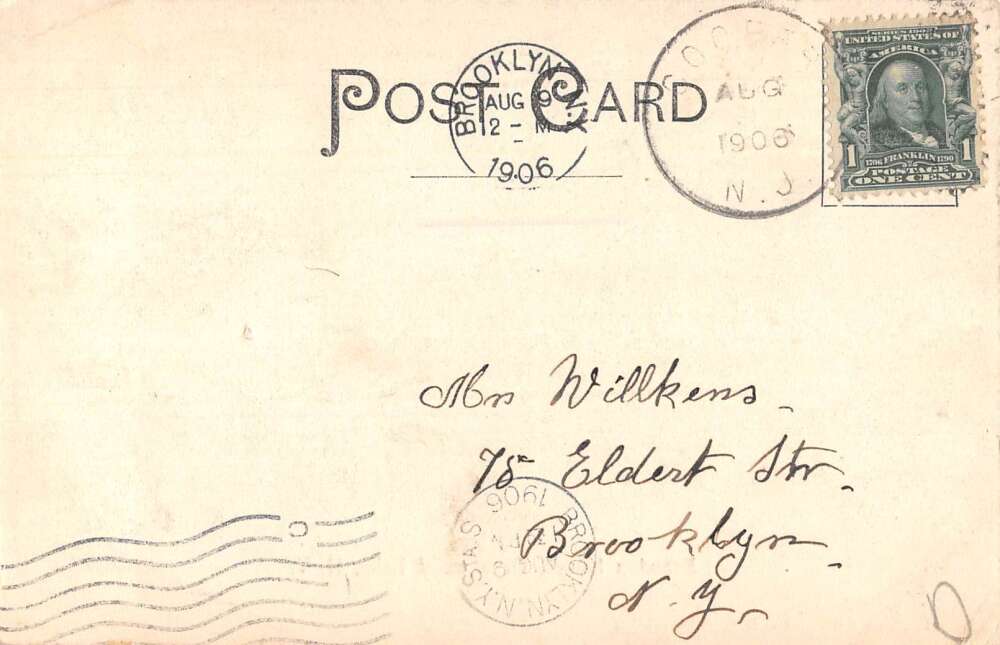 POST CARD
BROOKLYN, N.Y.
AUG 9
2 - M
1906
AUG
1906
N. J.
SERIES 1902
UNITED STATES OF
AMERICA
1 1
1706 FRANKLIN 1790
POSTAGE
ONE CENT
Mrs Willkens
75 Eldert Str.
Brooklyn
N. Y.
BROOKLYN, N.Y. STA. S
1906
D